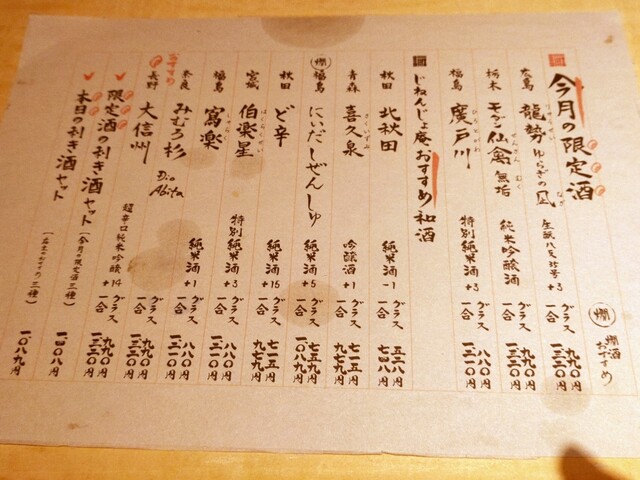 今月の限定酒
燗 燗酒おすすめ
広島 龍勢 ゆらぎの凪 生酛八反35号 +3 グラス 九九〇円 一合 一三二〇円
栃木 モダン仙禽 無垢 純米吟醸酒 グラス 九九〇円 一合 一三二〇円
福島 廣戸川 特別純米酒 +3 グラス 八八〇円 一合 一三一〇円
じねんじょ庵おすすめ和酒
秋田 北秋田 純米酒 -1 グラス 五二八円 一合 七四八円
青森 喜久泉 吟醸酒 +1 グラス 七一五円 一合 九七九円
燗 福島 にいだしぜんしゅ 純米酒 +5 グラス 七五九円 一合 一〇八九円
秋田 ど辛 純米酒 +15 グラス 七一五円 一合 九七九円
宮城 伯楽星 特別純米酒 +3 グラス 八八〇円
福島 寫楽 純米酒 +1 グラス 八八〇円 一合 一三一〇円
おすすめ 奈良 みむろ杉 Dio Abita グラス 九九〇円 一合 一三二〇円
長野 大信州 超辛口純米吟醸 +14 グラス 九九〇円 一合 一三二〇円
限定酒の利き酒セット (今月の限定酒三種) 一四〇八円
本日の利き酒セット 一〇八九円